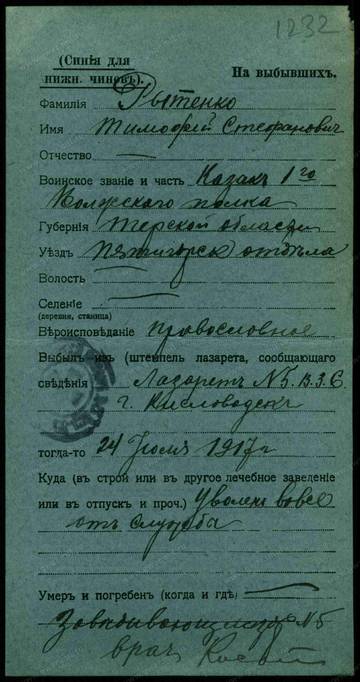 1232
(Синія для
нижн. чиновъ).
На выбывшихъ.
Фамилія Рытенко
Имя Тимофей Стефановичъ
Отчество —
Воинское званіе и часть Казакъ 1го
Волжскаго полка
Губернія Терской области
Уѣздъ Пятигорск отдѣла
Волость —
Селеніе —
(деревня, станица)
Вѣроисповѣданіе православное
Выбылъ изъ (штемпель лазарета, сообщающаго
свѣдѣнія Лазаретъ №5. В.З.С.
г. Кисловодскъ
тогда-то 24 Іюля 1917г
Куда (въ строй или въ другое лечебное заведеніе
или въ отпускъ и проч.) Уволенъ вовсе
отъ службы
Умеръ и погребенъ (когда и гдѣ) —
№5
врачъ